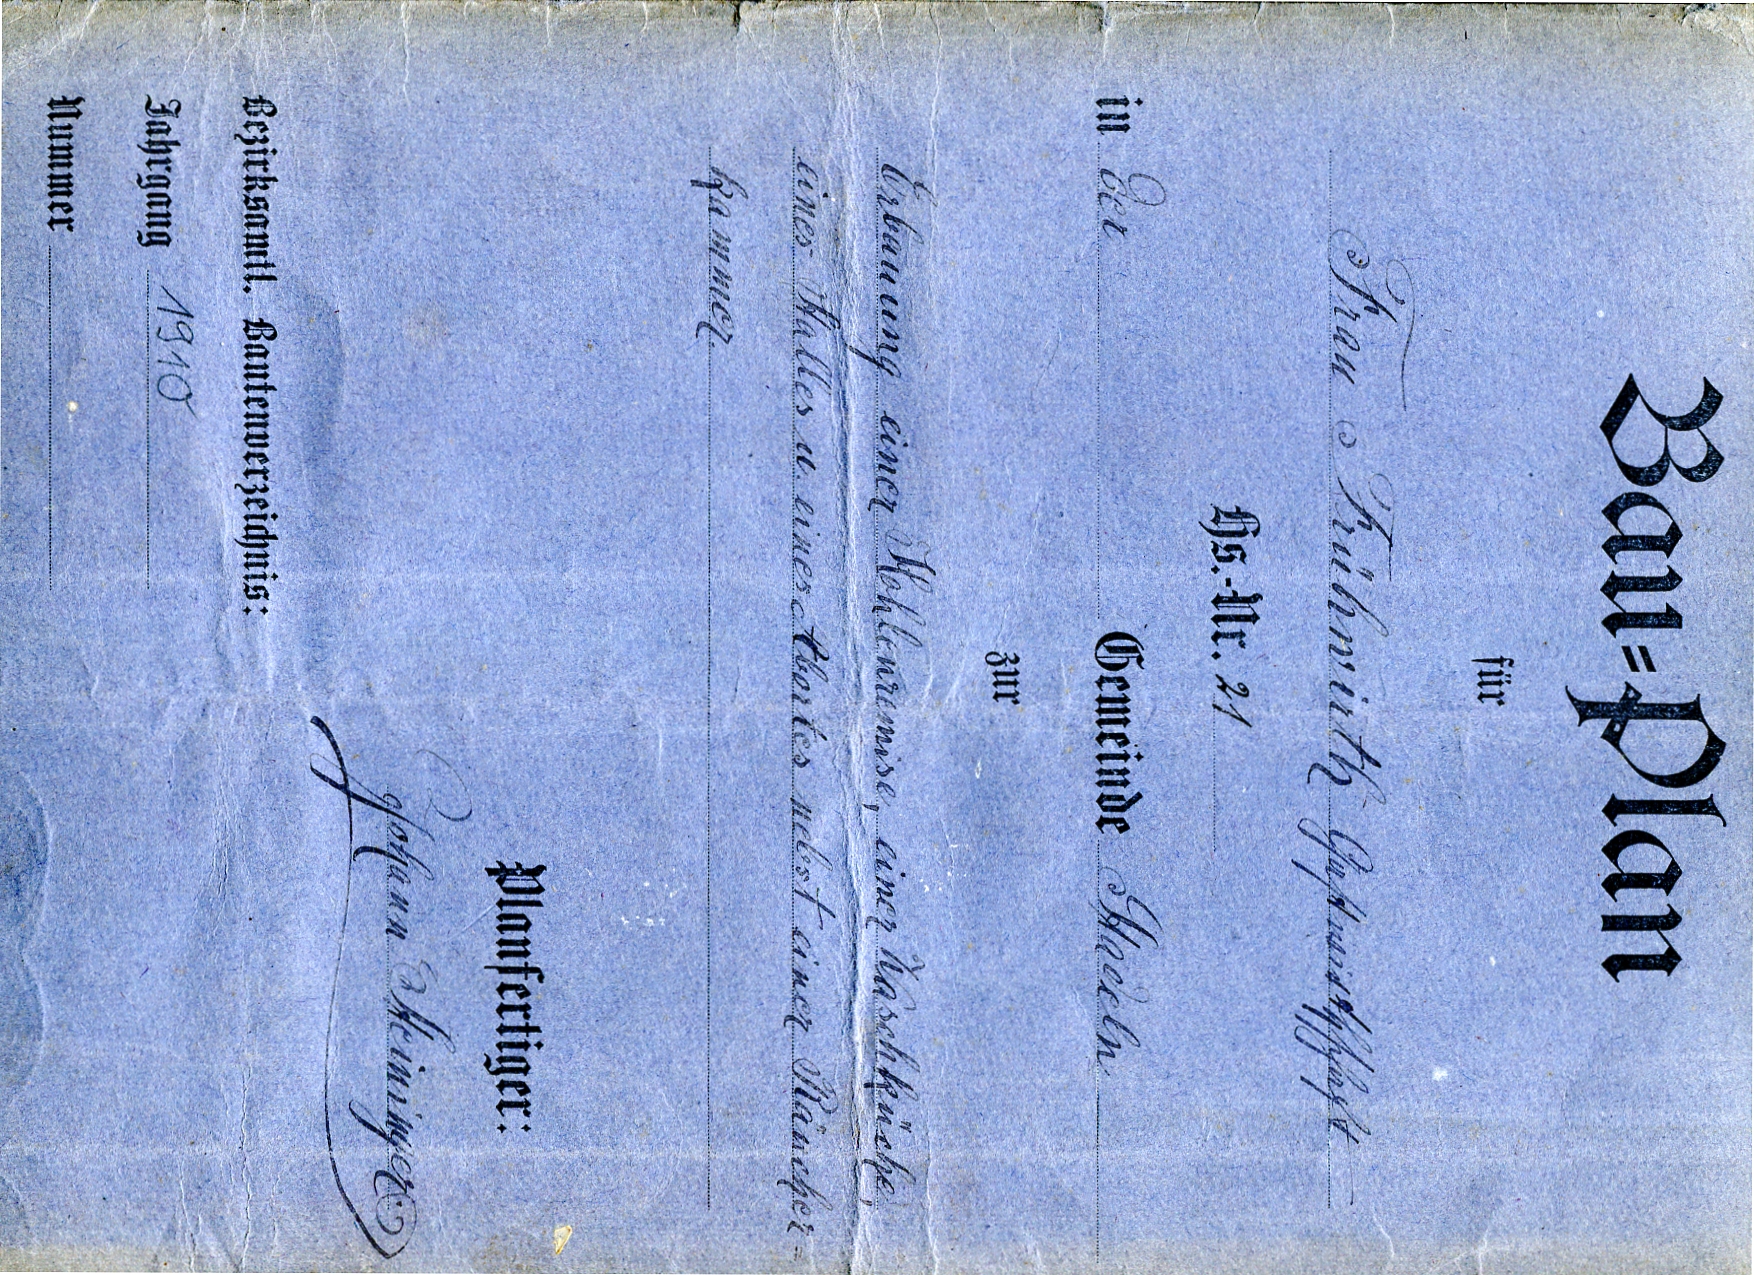 Bau=Plan
für
Frau Frühwirth Gastwirthschaft
Hs.-Nr. 21
in der Gemeinde Hödeln
zur
Erbauung einer Kohlenremise, einer Waschküche,
eines Stalles u. eines Abortes nebst einer Räucher=
kammer
Planfertiger:
Johann Meininger
Bezirksamtl. Bautenverzeichnis:
Jahrgang 1910
Nummer